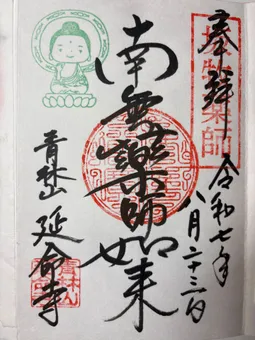 奉拝 令和七年
八月二十三日
南無薬師如来
青林山 延命寺